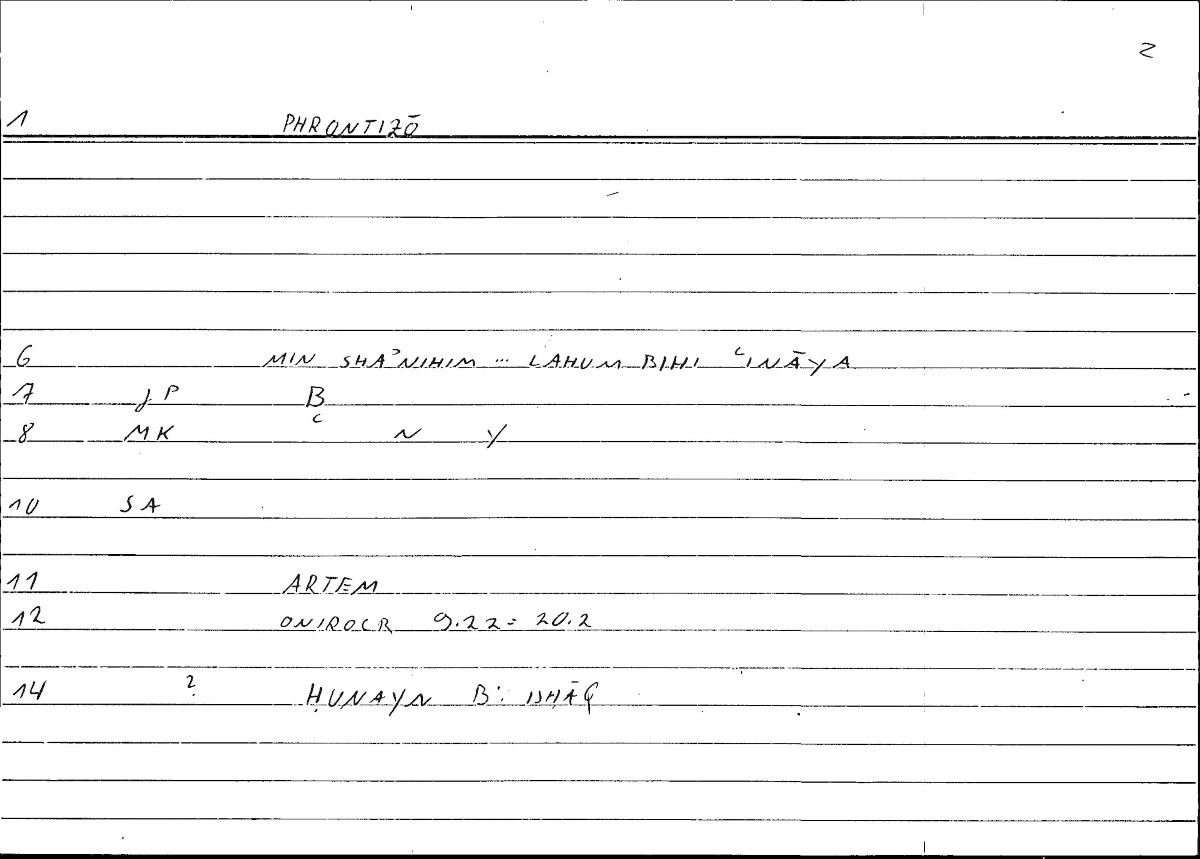 2
1 PHRONTIZŌ
6 MIN SHAʾNIHIM ... LAHUM BIHI ʿINĀYA
7 JP B
8 MK ʿ N Y
10 SA
11 ARTEM
12 ONIROCR 9.22 = 20.2
14 ? ḤUNAYN B. ISḤĀQ